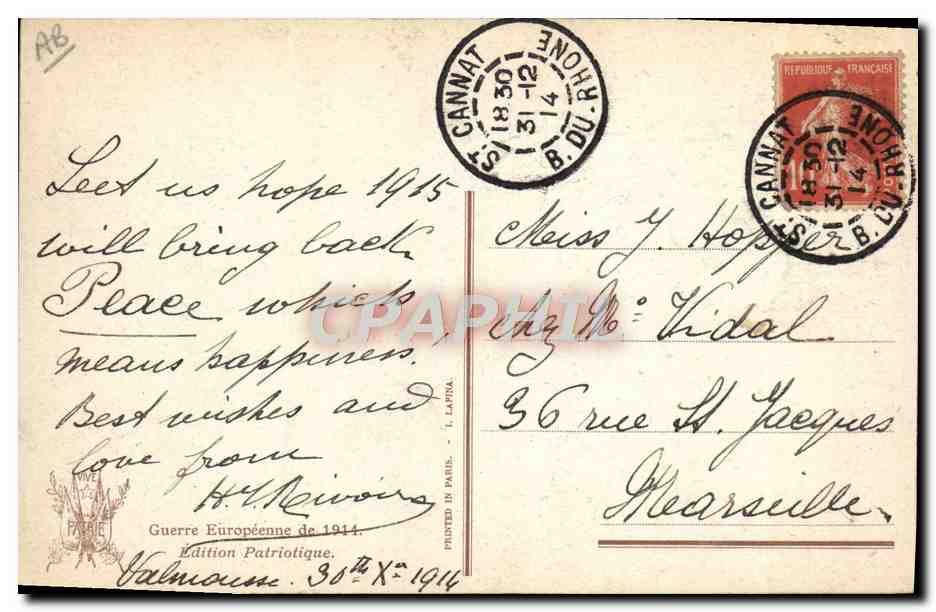 AB
ST CANNAT B. DU-RHONE
18 30
31-12
14
REPUBLIQUE FRANÇAISE
10
ST CANNAT B. DU-RHONE
18 30
31-12
14
Leet us hope 1915
will bring back
Peace which
means happiness.
Best wishes and
love from
Miss J. Hopper
chez Mo Vidal
36 rue St. Jacques
Marseille
CPAPHIL
VIVE
LA
PATRIE
Guerre Européenne de 1914.
Edition Patriotique.
Valmousse. 30th Xer 1914
PRINTED IN PARIS. - I. LAPINA.